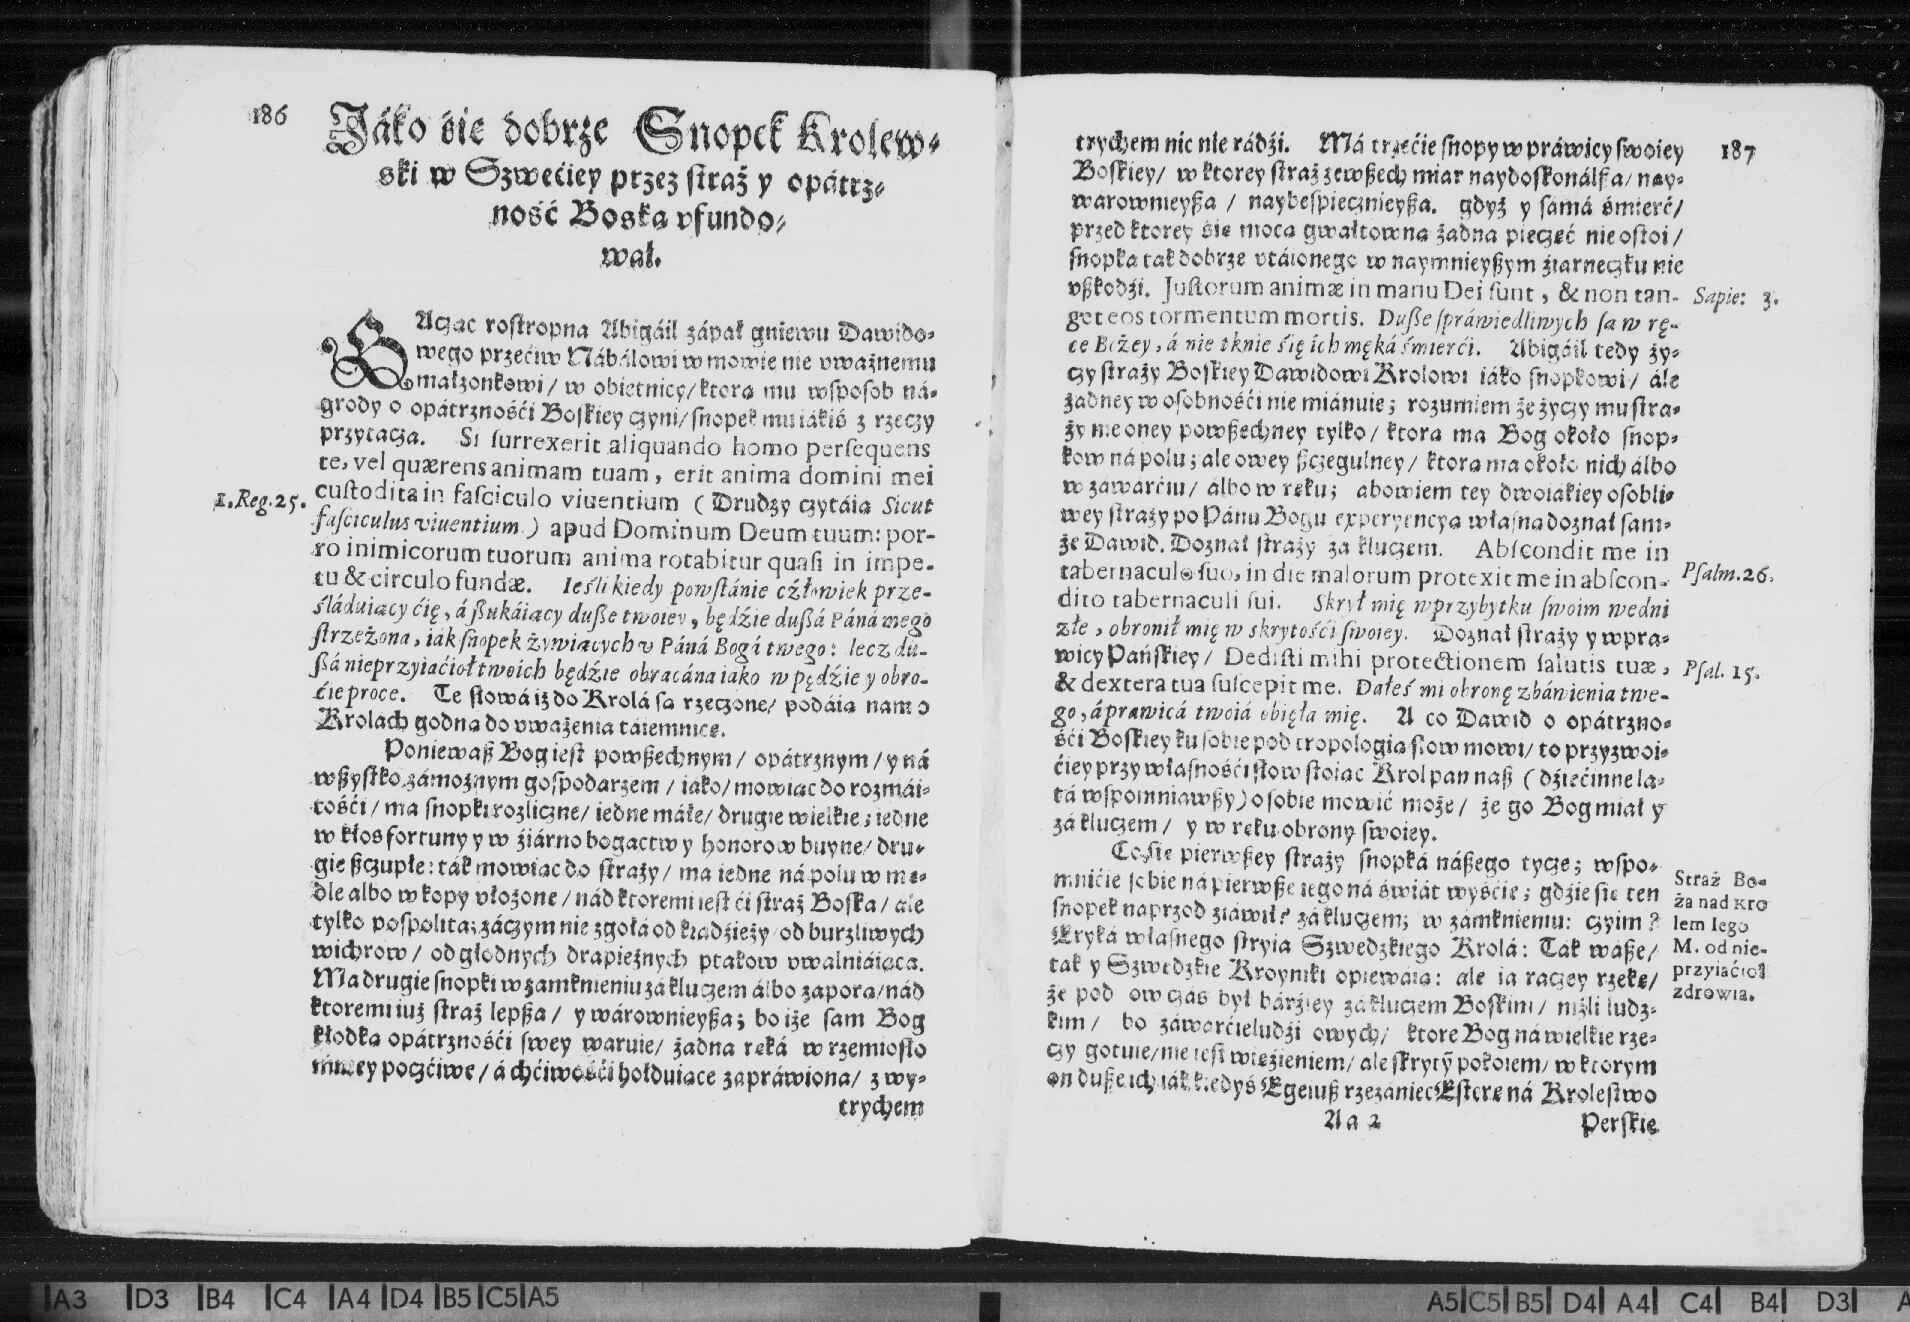 186
Jáko śie dobrze Snopek Krolew-
ski w Szwećiey przez straż y opátrz-
ność Boską vfundo-
wał.
BAcząc rostropna Abigáil zápał gniewu Dawido-
wego przećiw Nábálowi w mowie nie vważnemu
małżonkowi / w obietnicę / ktorą mu wsposob ná-
grody o opátrznośći Boskiey czyni / snopek mu iákiś z rzeczy
przytacza. Si surrexerit aliquando homo persequens
te, vel quærens animam tuam, erit anima domini mei
custodita in fasciculo viuentium ( Drudzy czytáią Sicut
1. Reg. 25.
fasciculus viuentium ) apud Dominum Deum tuum: por-
ro inimicorum tuorum anima rotabitur quasi in impe-
tu & circulo fundæ. Ieśli kiedy powstánie człowiek prze-
śláduiący ćię, á ßukáiący duße twoiey, będźie dußá Páná mego
strzeżona, iák snopek żywiących v Páná Bogá twego: lecz du-
ßá nieprzyiaćioł twoich będźie obracána iáko w pędźie y obro-
ćie proce. Te słowá iż do Krolá są rzeczone / podáią nam o
Krolach godną do vważenia táiemnicę.
Poniewaß Bog iest powßechnym / opátrznym / y ná
wßystko zámożnym gospodarzem / iáko / mowiąc do rozmái-
tośći / ma snopki rozliczne / iedne máłe / drugie wielkie ; iedne
w kłos fortuny y w źiárno bogactw y honorow buyne / dru-
gie ßczupłe: ták mowiąc do straży / ma iedne ná polu w mę-
dle albo w kopy vłożone / nád ktoremi iest ći straż Boska / ále
tylko pospolita; záczym nie zgołá od kradźieży / od burzliwych
wichrow / od głodnych drapieżnych ptakow vwalniáiąca.
Ma drugie snopki w zamknieniu zá kluczem álbo zaporą / nád
ktoremi iuż straż lepßa / y wárownieyßa ; bo iże sam Bog
kłodką opátrznośći swey waruie / żadna ręká w rzemiosło
mniey poczćiwe / á chćiwośći hołduiące zapráwiona / z wy-
trychem
187
trychem nic nie rádźi. Má trzećie snopy w práwicy swoiey
Boskiey / w ktorey straż zewßech miar naydoskonálßa / nay-
warownieyßa / naybespiecznieyßa. gdyż y sámá śmierć /
przed ktorey śię mocą gwałtowną żadna pieczęć nie ostoi /
snopka tak dobrze vtáionego w naymnieyßym źiarneczku nie
vßkodźi. Justorum animæ in manu Dei sunt, & non tan-
Sapie: 3.
get eos tormentum mortis. Duße spráwiedliwych są w rę-
ce Bożey, á nie tknie się ich męká śmierći. Abigáil tedy ży-
czy straży Boskiey Dawidowi Krolowi iáko snopkowi / ále
żadney w osobnośći nie miánuie ; rozumiem że życzy mu stra-
ży nie oney powßechney tylko / ktorą ma Bog około snop-
kow ná polu ; ale owey ßczegulney / ktorą ma około nich álbo
w záwárćiu / álbo w ręku ; abowiem tey dwoiákiey osobli-
wey straży po Pánu Bogu experyencyą własną doznał sam-
że Dawid. Doznał straży zá kluczem. Abscondit me in
tabernaculo suo, in die malorum protexit me in abscon-
Psalm. 26.
dito tabernaculi sui. Skrył mię w przybytku swoim we dni
złe, obronił mię w skrytośći swoiey. Doznał straży y w pra-
wicy Páńskiey / Dedisti mihi protectionem salutis tuæ,
Psal. 15.
& dextera tua suscepit me. Dałeś mi obronę zbáwienia twe-
go, á prawicá twoiá obięła mię. A co Dawid o opátrzno-
śći Boskiey ku sobie pod tropologią słow mowi / to przyzwoi-
ćiey przy własnośći słow stoiąc Krol pan naß ( dźiećinne la-
tá wspomniawßy ) o sobie mowić może / że go Bog miał y
zá kluczem / y w ręku obrony swoiey.
Co się pierwßey straży snopká náßego tycze ; wspo-
mnićie sobie ná pierwße iego ná świát wyśćie ; gdźie się ten
snopek naprzod ziáwił? zá kluczem; w zámknieniu: czyim?
Eryká własnego stryiá Szwedzkiego Krolá: Ták wáße /
tak y Szwedzkie Kroyniki opiewáią: ale ia raczey rzekę /
że pod ow czás był bárźiey zá kluczem Boskim / niżli ludz-
kim / bo záwárćie ludźi owych / ktore Bog ná wielkie rze-
czy gotuie / nie iest więźieniem / ale skrytỹ pokoiem / w ktorym
on duße ich iák kiedyś Egeiuß rzezaniec Esterę ná Krolestwo
Straż Bo-
ża nad Kro
lem Iego
M. od nie-
przyiaćioł
zdrowia.
Aa 2
Perskie